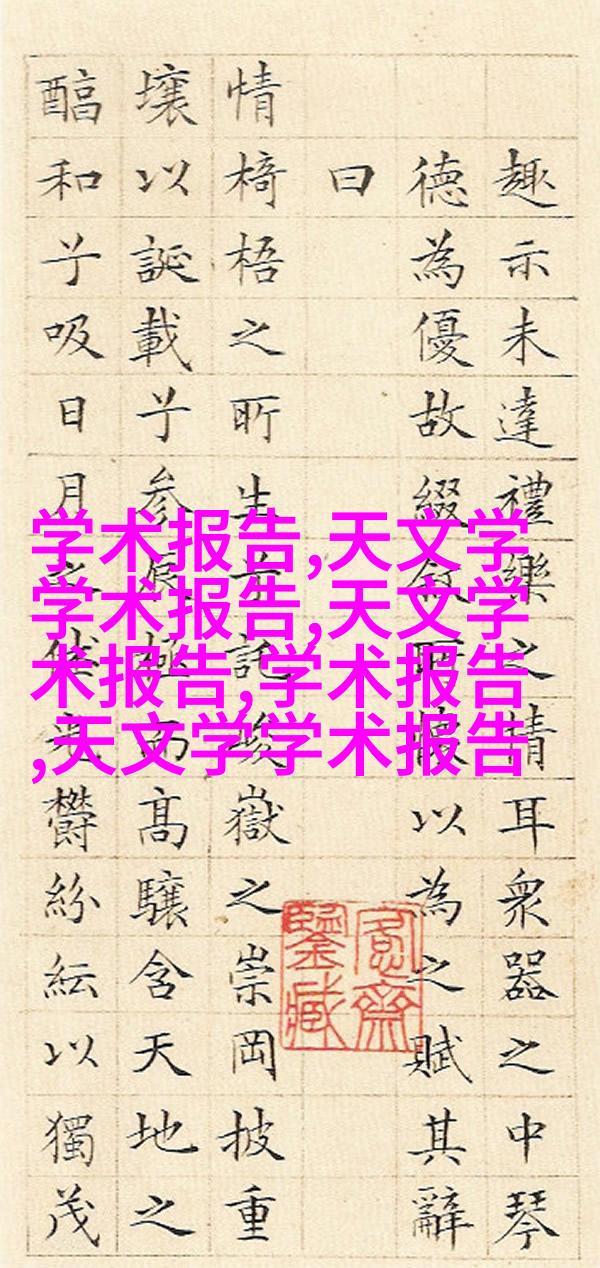 趣示未達禮樂之情耳衆器之中琴
德為優故綴敘所懷以為之賦其辭
曰
情椅梧之所生兮託峻嶽之崇岡披重
壤以誕載兮参辰極而高驤含天地之
醕和兮吸日月之光鬱紛紜以獨茂
学术报告,天文学
学术报告,天文学
术报告,学术报告
,天文学学术报告
愙齋
鑒藏